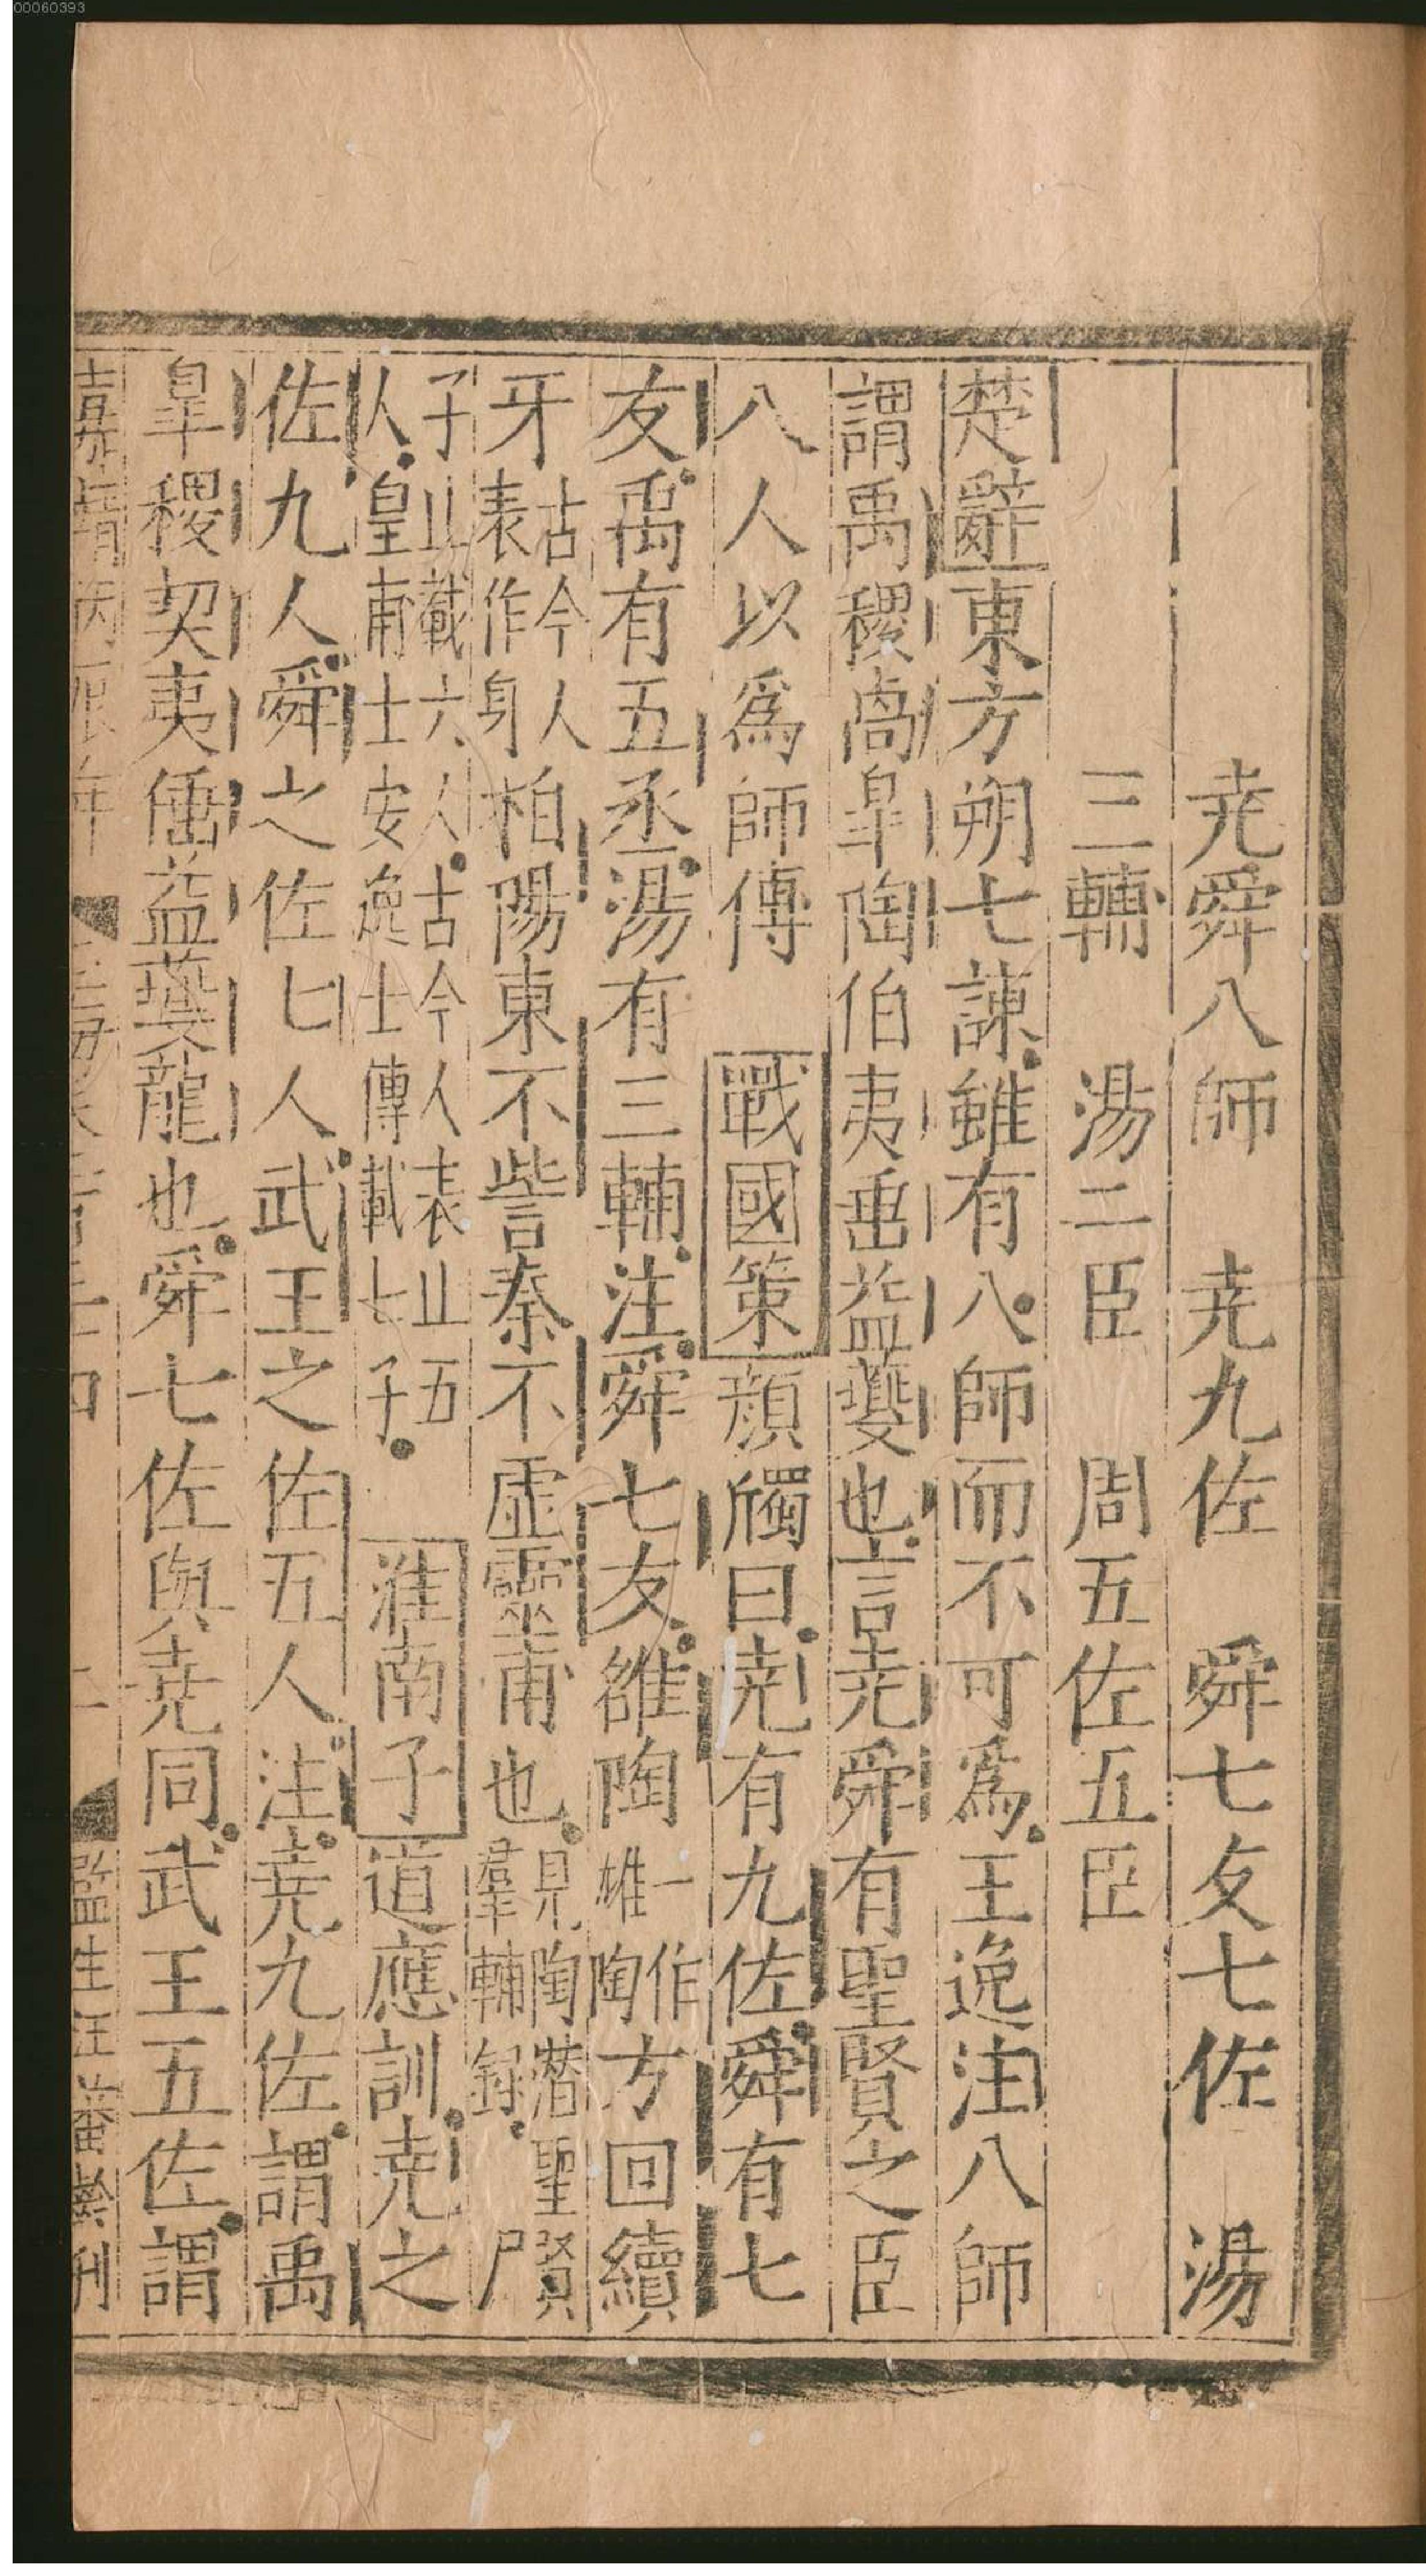 00060393
堯舜八師　堯九佐　舜七友七佐　湯
三輔　湯二臣　周五佐五臣
楚辭東方朔七諫雖有八師而不可為王逸注八師
謂禹稷卨皐陶伯夷垂益夔也言堯舜有聖賢之臣
八人以為師傅　戰國策顔斶曰堯有九佐舜有七
友禹有五丞湯有三輔注舜七友雒陶一作雄陶方回續
牙古今人表作身柏陽東不訾秦不虛靈甫也見陶潛聖賢羣輔録尸
子止載六人古今人表止五人皇甫士安逸士傳載七子　淮南子道應訓堯之
佐九人舜之佐七人武王之佐五人注堯九佐謂禹
皐稷契夷倕益夔龍也舜七佐與堯同武王五佐謂
嘉靖丙辰年　玉海卷　百三十四　二　監生汪蕃刊